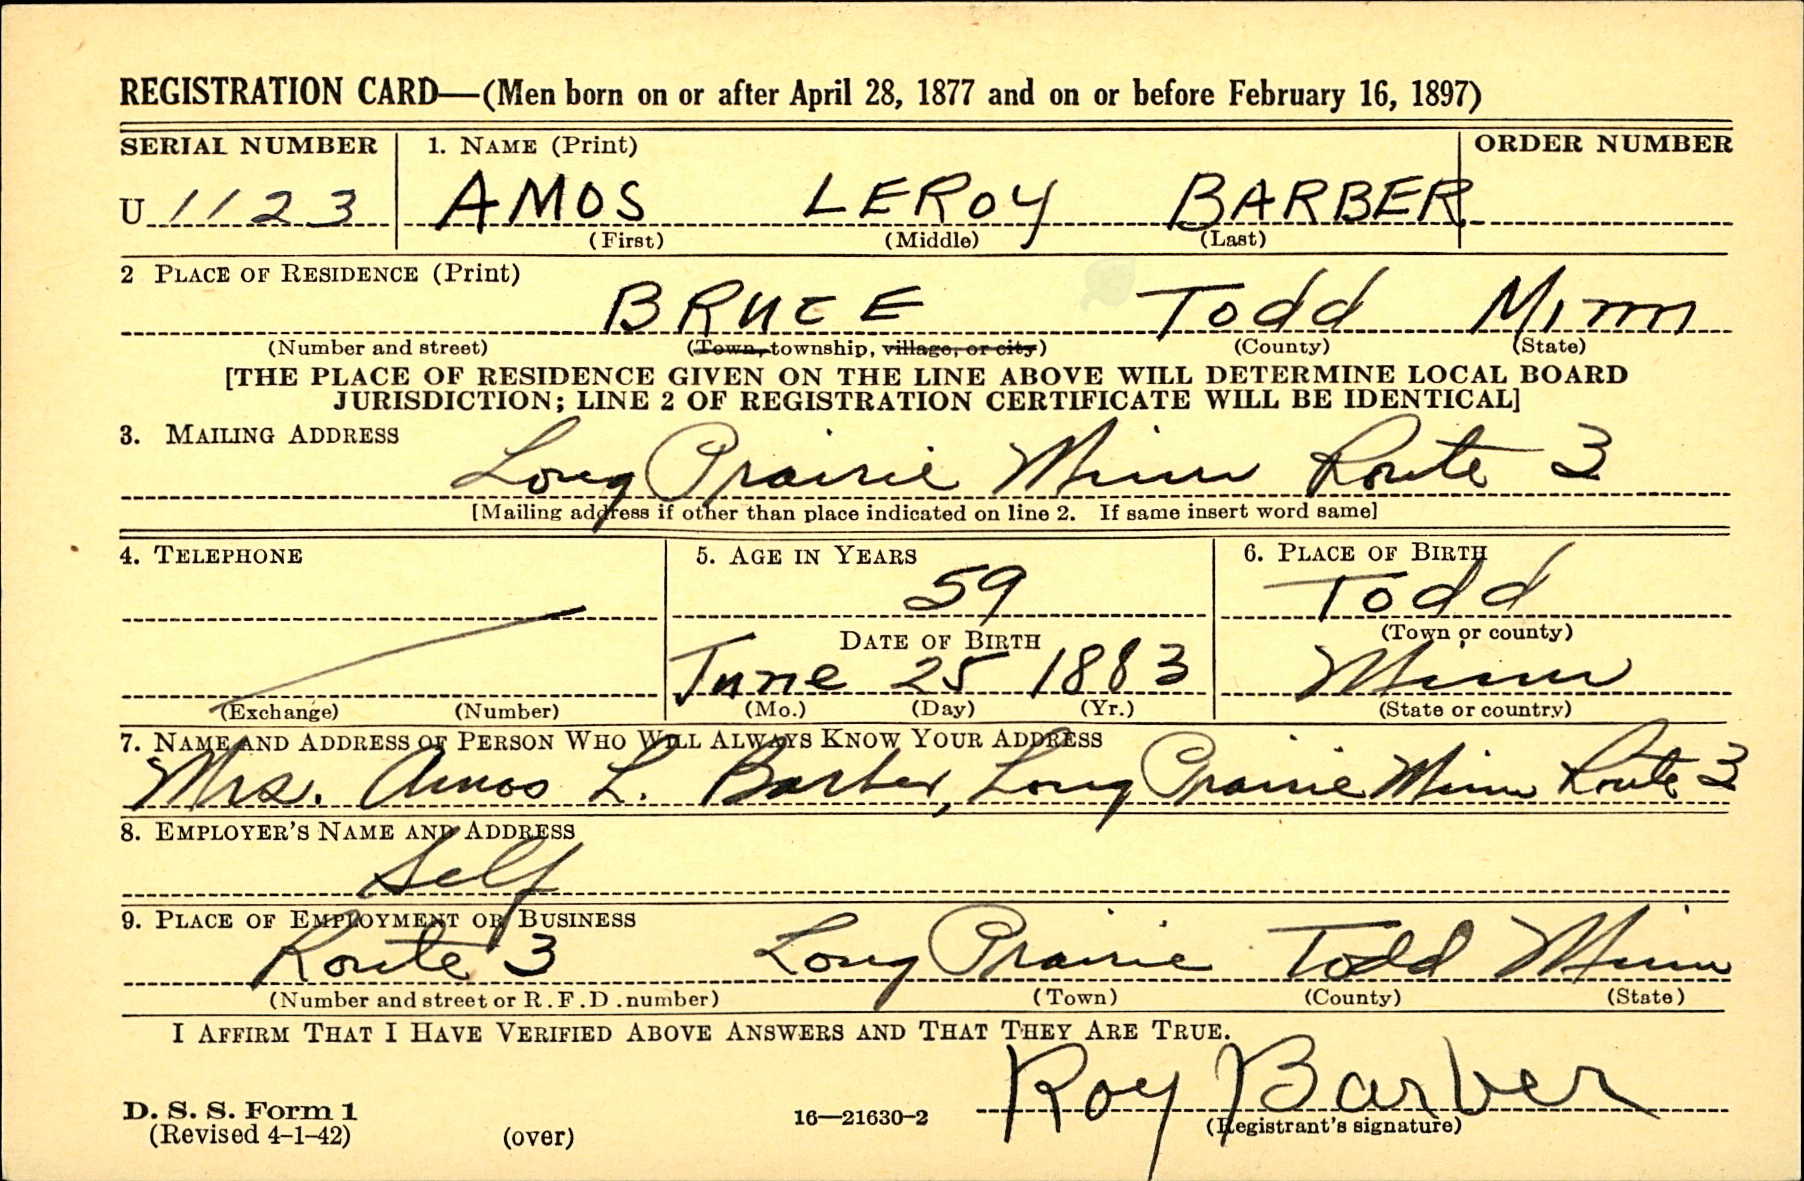 REGISTRATION CARD—(Men born on or after April 28, 1877 and on or before February 16, 1897)
SERIAL NUMBER 1. NAME (Print) ORDER NUMBER
U 1123 AMOS LEROY BARBER
(First) (Middle) (Last)
2 PLACE OF RESIDENCE (Print)
BRUCE Todd Minn
(Number and street) (Town, township, village, or city) (County) (State)
[THE PLACE OF RESIDENCE GIVEN ON THE LINE ABOVE WILL DETERMINE LOCAL BOARD
JURISDICTION; LINE 2 OF REGISTRATION CERTIFICATE WILL BE IDENTICAL]
3. MAILING ADDRESS
Long Prairie Minn Route 3
[Mailing address if other than place indicated on line 2. If same insert word same]
4. TELEPHONE 5. AGE IN YEARS 6. PLACE OF BIRTH
59 Todd
DATE OF BIRTH (Town or county)
June 25 1883 Minn
(Exchange) (Number) (Mo.) (Day) (Yr.) (State or country)
7. NAME AND ADDRESS OF PERSON WHO WILL ALWAYS KNOW YOUR ADDRESS
Mrs. Amos L. Barber, Long Prairie Minn Route 3
8. EMPLOYER'S NAME AND ADDRESS
Self
9. PLACE OF EMPLOYMENT OR BUSINESS
Route 3 Long Prairie Todd Minn
(Number and street or R.F.D. number) (Town) (County) (State)
I AFFIRM THAT I HAVE VERIFIED ABOVE ANSWERS AND THAT THEY ARE TRUE.
Roy Barber
D. S. S. Form 1 16—21630-2
(Revised 4-1-42) (over) (Registrant's signature)